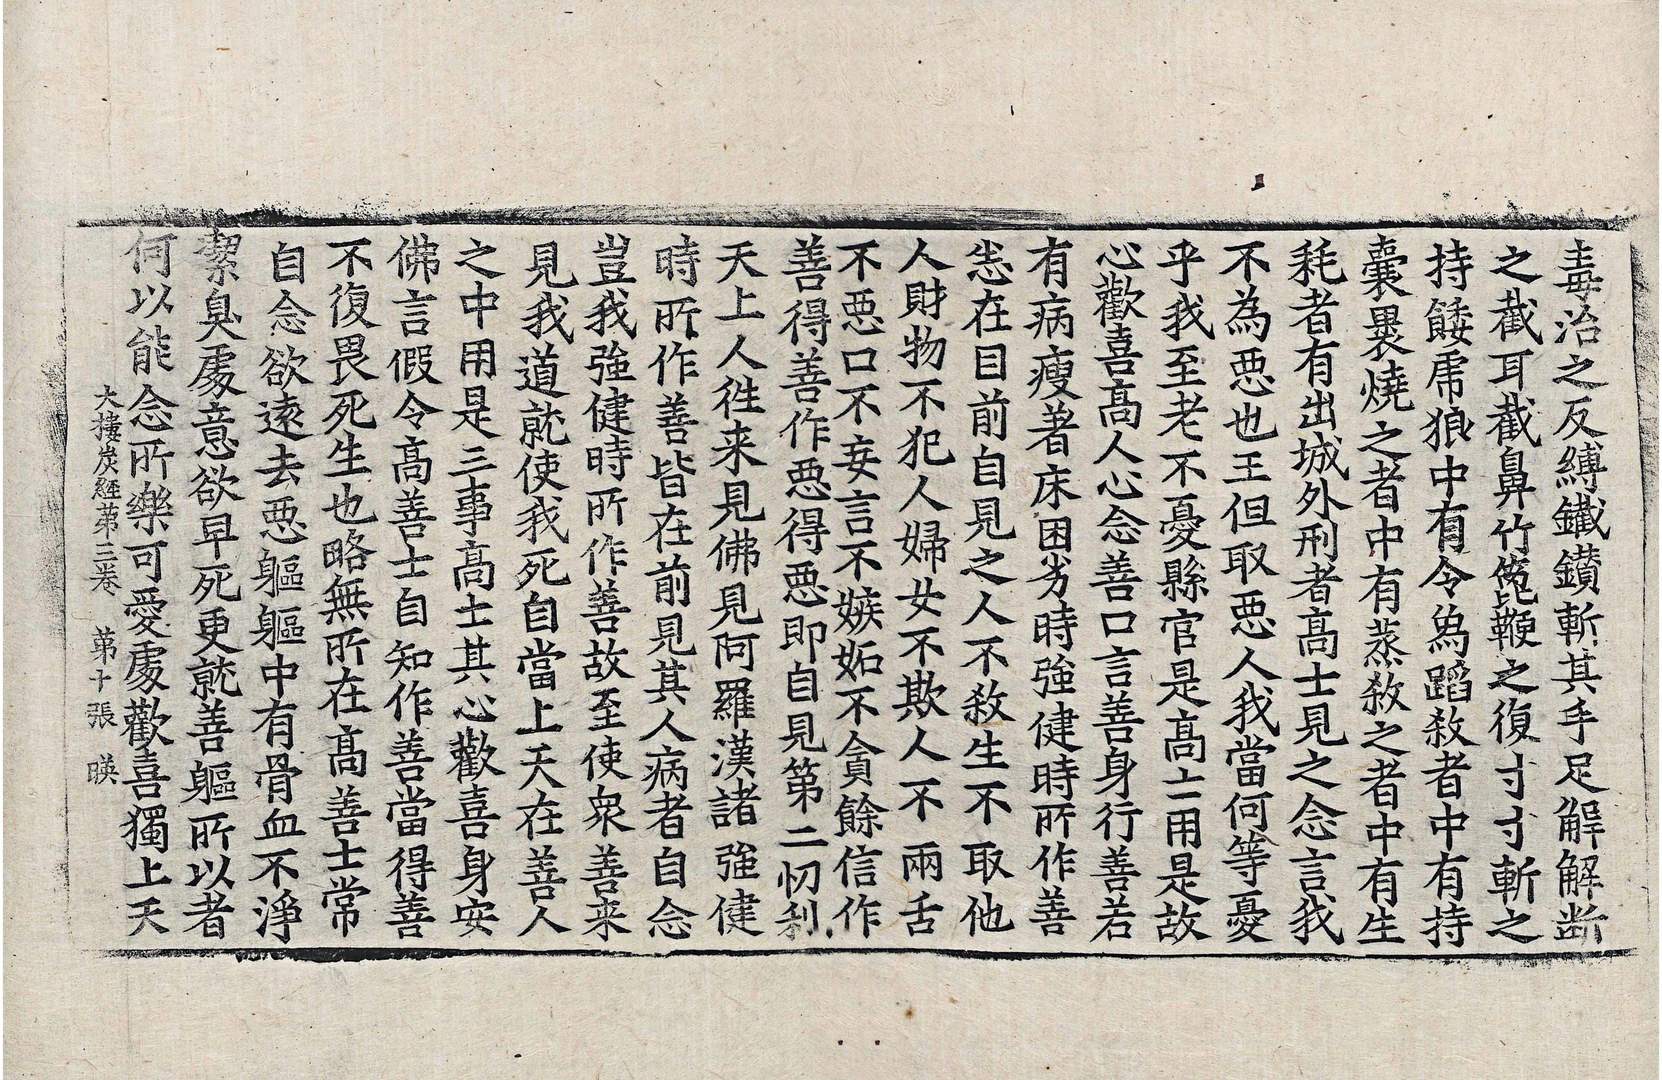 毒治之反縛鐵鑚斬其手足解解断
之截耳截鼻竹篼鞭之復寸寸斬之
持餧虎狼中有令為蹈敹者中有持
囊褁燒之者中有蒸敹之者中有生
耗者有出城外刑者高士見之念言我
不為悪也王但取悪人我當何等憂
乎我至老不憂縣官是高士用是故
心歡喜高人心念善口言善身行善若
有病瘦著床困劣時強健時所作善
恙在目前自見之人不敹生不取他
人財物不犯人婦女不欺人不兩舌
不悪口不妄言不嫉妬不貪餘信作
善得善作悪得悪即自見第二忉利
天上人徃来見佛見阿羅漢諸強健
時所作善皆在前見其人病者自念
豈我強健時所作善故至使衆善来
見我道就使我死自當上天在善人
之中用是三事高士其心歡喜身安
佛言假令高善士自知作善當得善
不復畏死生也略無所在高善士常
自念欲遠去悪軀軀中有骨血不淨
潔臭處意欲早死更就善軀所以者
何以能念所樂可愛處歡喜獨上天
大樓炭經苐三卷 苐十張 暎